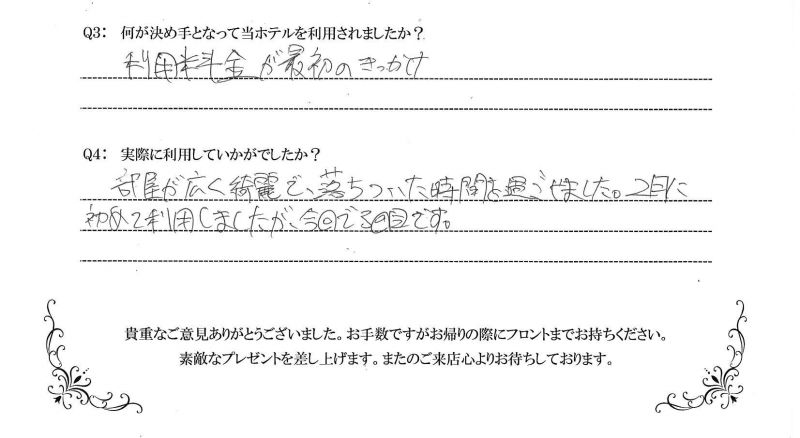 Q3： 何が決め手となって当ホテルを利用されましたか？
利用料金が最初のきっかけ
Q4： 実際に利用していかがでしたか？
部屋が広く綺麗で、落ちついた時間を過ごせました。2月に
初めて利用しましたが、今回で3回目です。
貴重なご意見ありがとうございました。お手数ですがお帰りの際にフロントまでお持ちください。
素敵なプレゼントを差し上げます。またのご来店心よりお待ちしております。